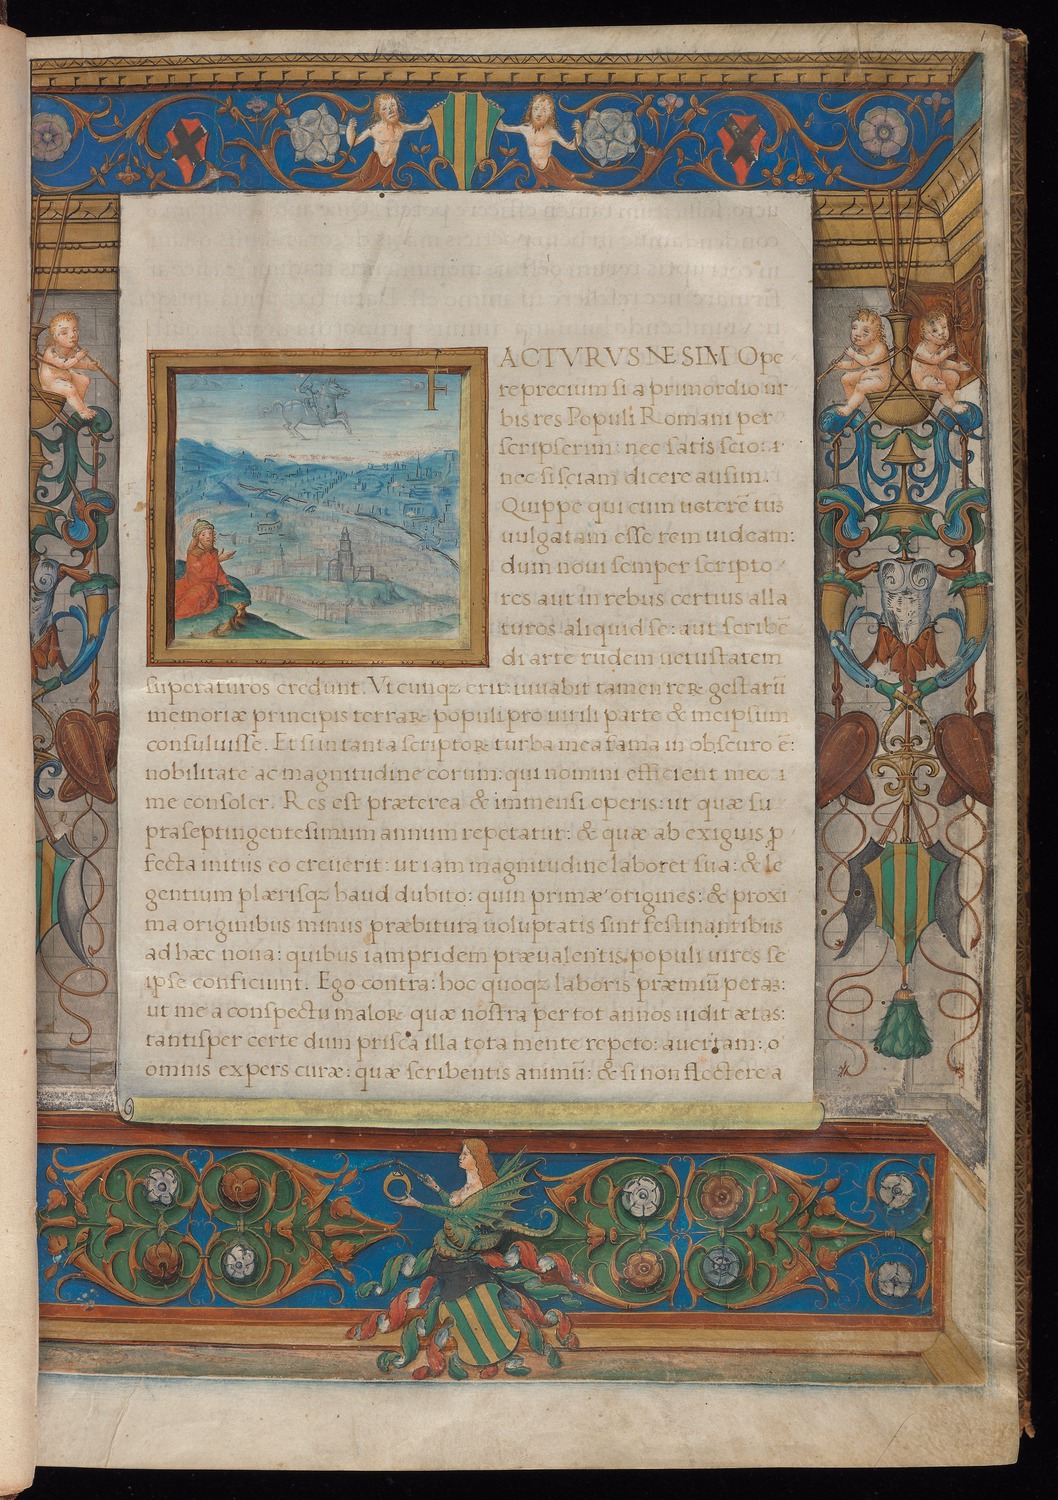 F
ACTVRVS NE SIM Ope
re precium si a primordio ur
bis res Populi Romani per
scripserim: nec satis scio:
nec si sciam dicere ausim.
Quippe qui cum ueterē tū
uulgatam esse rem uideam:
dum noui semper scripto
res aut in rebus certius alla
turos aliquid se: aut scribē
di arte rudem uetustatem
superaturos credunt. Vtcunqꝫ erit iuuabit tamen reꝝ gestarū
memoriæ principis terraꝝ populi pro uirili parte & meipsum
consuluisse. Et si in tanta scriptoꝝ turba mea fama in obscuro ē:
nobilitate ac magnitudine eorum: qui nomini efficient meo
me consoler. Res est præterea & immensi operis: ut quæ su
pra septingentesimum annum repetatur: & quæ ab exiguis ꝓ
fecta initiis eo creuerit: ut iam magnitudine laboret sua: & le
gentium plærisqꝫ haud dubito: quin primæ origines: & proxi
ma originibus minus præbitura uoluptatis sint festinantibus
ad hæc noua: quibus iampridem præualentis populi uires se
ipse conficiunt. Ego contra: hoc quoqꝫ laboris præmiū petaꝫ:
ut me a conspectu maloꝝ quæ nostra per tot annos uidit ætas:
tantisper certe dum prisca illa tota mente repeto: auertam: o
omnis expers curæ: quæ scribentis animū: & si non flectere a